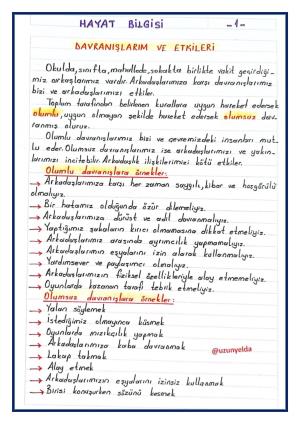 HAYAT BİLGİSİ -1-
DAVRANIŞLARIM VE ETKİLERİ
Okulda, sınıfta, mahallede, sokakta birlikte vakit geçirdiği-
miz arkadaşlarımız vardır. Arkadaşlarımıza karşı davranışlarımız
bizi ve arkadaşlarımızı etkiler.
Toplum tarafından belirlenen kurallara uygun hareket edersek
olumlu, uygun olmayan şekilde hareket edersek olumsuz dav-
ranmış oluruz.
Olumlu davranışlarımız bizi ve çevremizdeki insanları mut-
lu eder. Olumsuz davranışlarımız ise arkadaşlarımızı ve yakın-
larımızı incitebilir. Arkadaşlık ilişkilerimizi kötü etkiler.
Olumlu davranışlara örnekler:
→ Arkadaşlarımıza karşı her zaman saygılı, kibar ve hoşgörülü
olmalıyız.
→ Bir hatamız olduğunda özür dilemeliyiz.
→ Arkadaşlarımıza dürüst ve adil davranmalıyız.
→ Yaptığımız şakaların kırıcı olmamasına dikkat etmeliyiz.
→ Arkadaşlarımız arasında ayrımcılık yapmamalıyız.
→ Arkadaşlarımızın eşyalarını izin alarak kullanmalıyız.
→ Yardımsever ve paylaşımcı olmalıyız.
→ Arkadaşlarımızın fiziksel özellikleriyle alay etmemeliyiz.
→ Oyunlarda kazanan tarafı tebrik etmeliyiz.
Olumsuz davranışlara örnekler:
→ Yalan söylemek
→ İstediğimiz olmayınca küsmek
→ Oyunlarda mızıkçılık yapmak
→ Arkadaşlarımıza kaba davranmak
→ Lakap takmak
@uzunyelda
→ Alay etmek
→ Arkadaşlarımızın eşyalarını izinsiz kullanmak
→ Birisi konuşurken sözünü kesmek